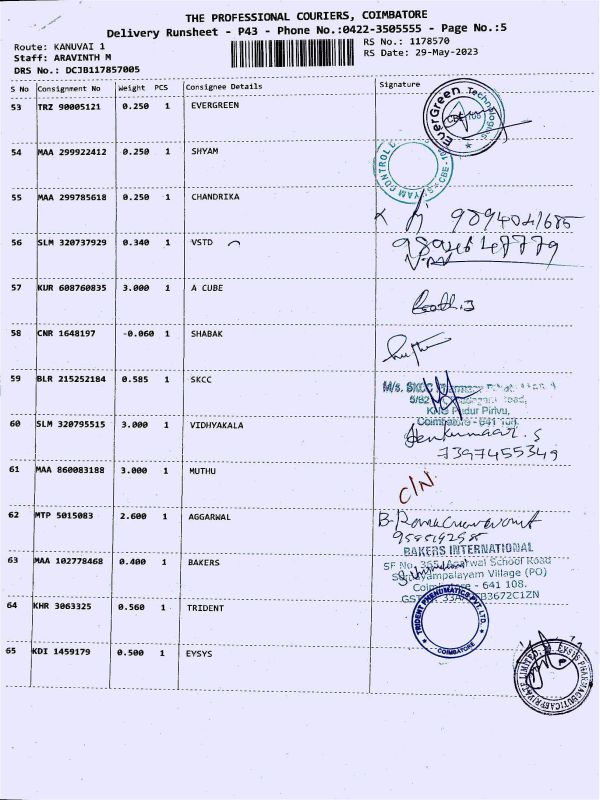 THE PROFESSIONAL COURIERS, COIMBATORE
Delivery Runsheet - P43 - Phone No.:0422-3505555 - Page No.:5
Route: KANUVAI 1
Staff: ARAVINTH M
DRS No.: DCJB117857005
RS No.: 1178570
RS Date: 29-May-2023
S No Consignment No Weight PCS Consignee Details Signature
53 TRZ 90005121 0.250 1 EVERGREEN
EverGreen Technologies
CBE-108
54 MAA 299922412 0.250 1 SHYAM
55 MAA 299785618 0.250 1 CHANDRIKA
9894041685
56 SLM 320737929 0.340 1 VSTD
57 KUR 608760835 3.000 1 A CUBE
58 CNR 1648197 -0.060 1 SHABAK
59 BLR 215252184 0.585 1 SKCC
M/s. SKCC
5/82
Pudur Pirivu,
Coimbatore - 641 108.
60 SLM 320795515 3.000 1 VIDHYAKALA
7397455349
61 MAA 860083188 3.000 1 MUTHU
C/N
62 MTP 5015083 2.600 1 AGGARWAL
63 MAA 102778468 0.400 1 BAKERS
BAKERS INTERNATIONAL
SF No. 365/ Agarwal School Road
Village (PO)
Coimbatore - 641 108.
64 KHR 3063325 0.560 1 TRIDENT
TRIDENT PNEUMATICS PVT. LTD.
COIMBATORE
65 KDI 1459179 0.500 1 EYSYS